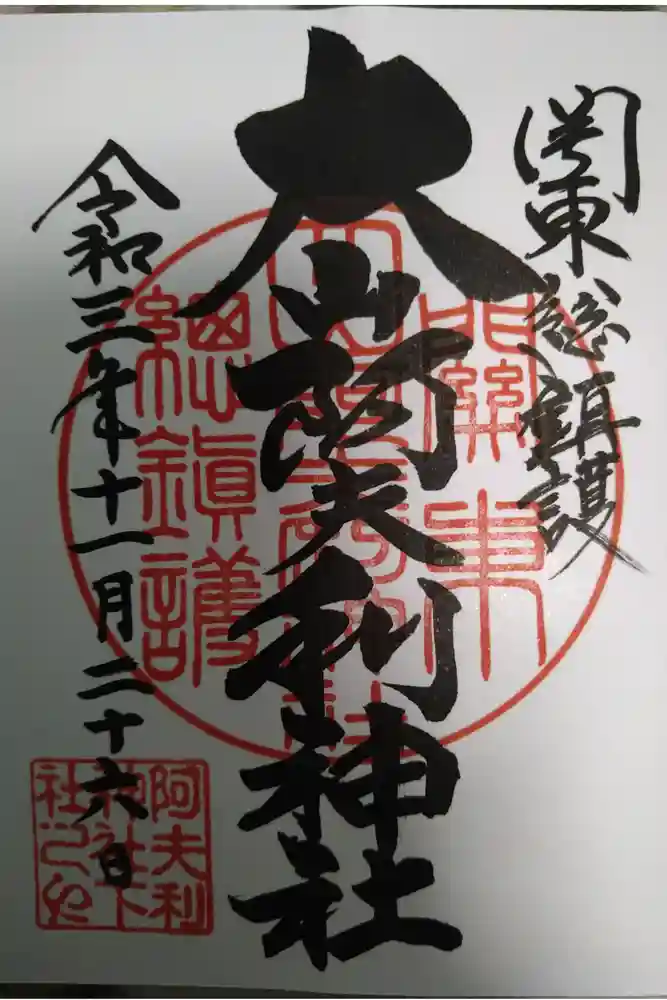 関東総鎮護
大山阿夫利神社
令和三年十一月二十六日
關東
總鎮護
阿夫利
神社下
社之印